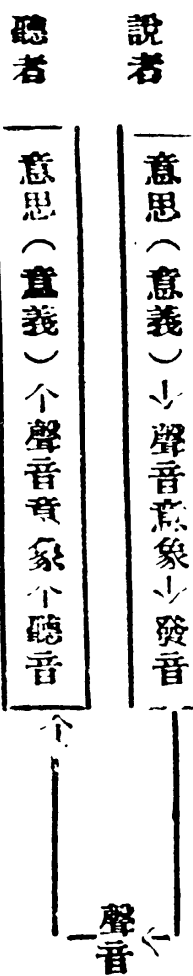 說者
意思（意義）↓聲音意象↓發音
聲音
聽者
意思（意義）↑聲音意象↑聽音